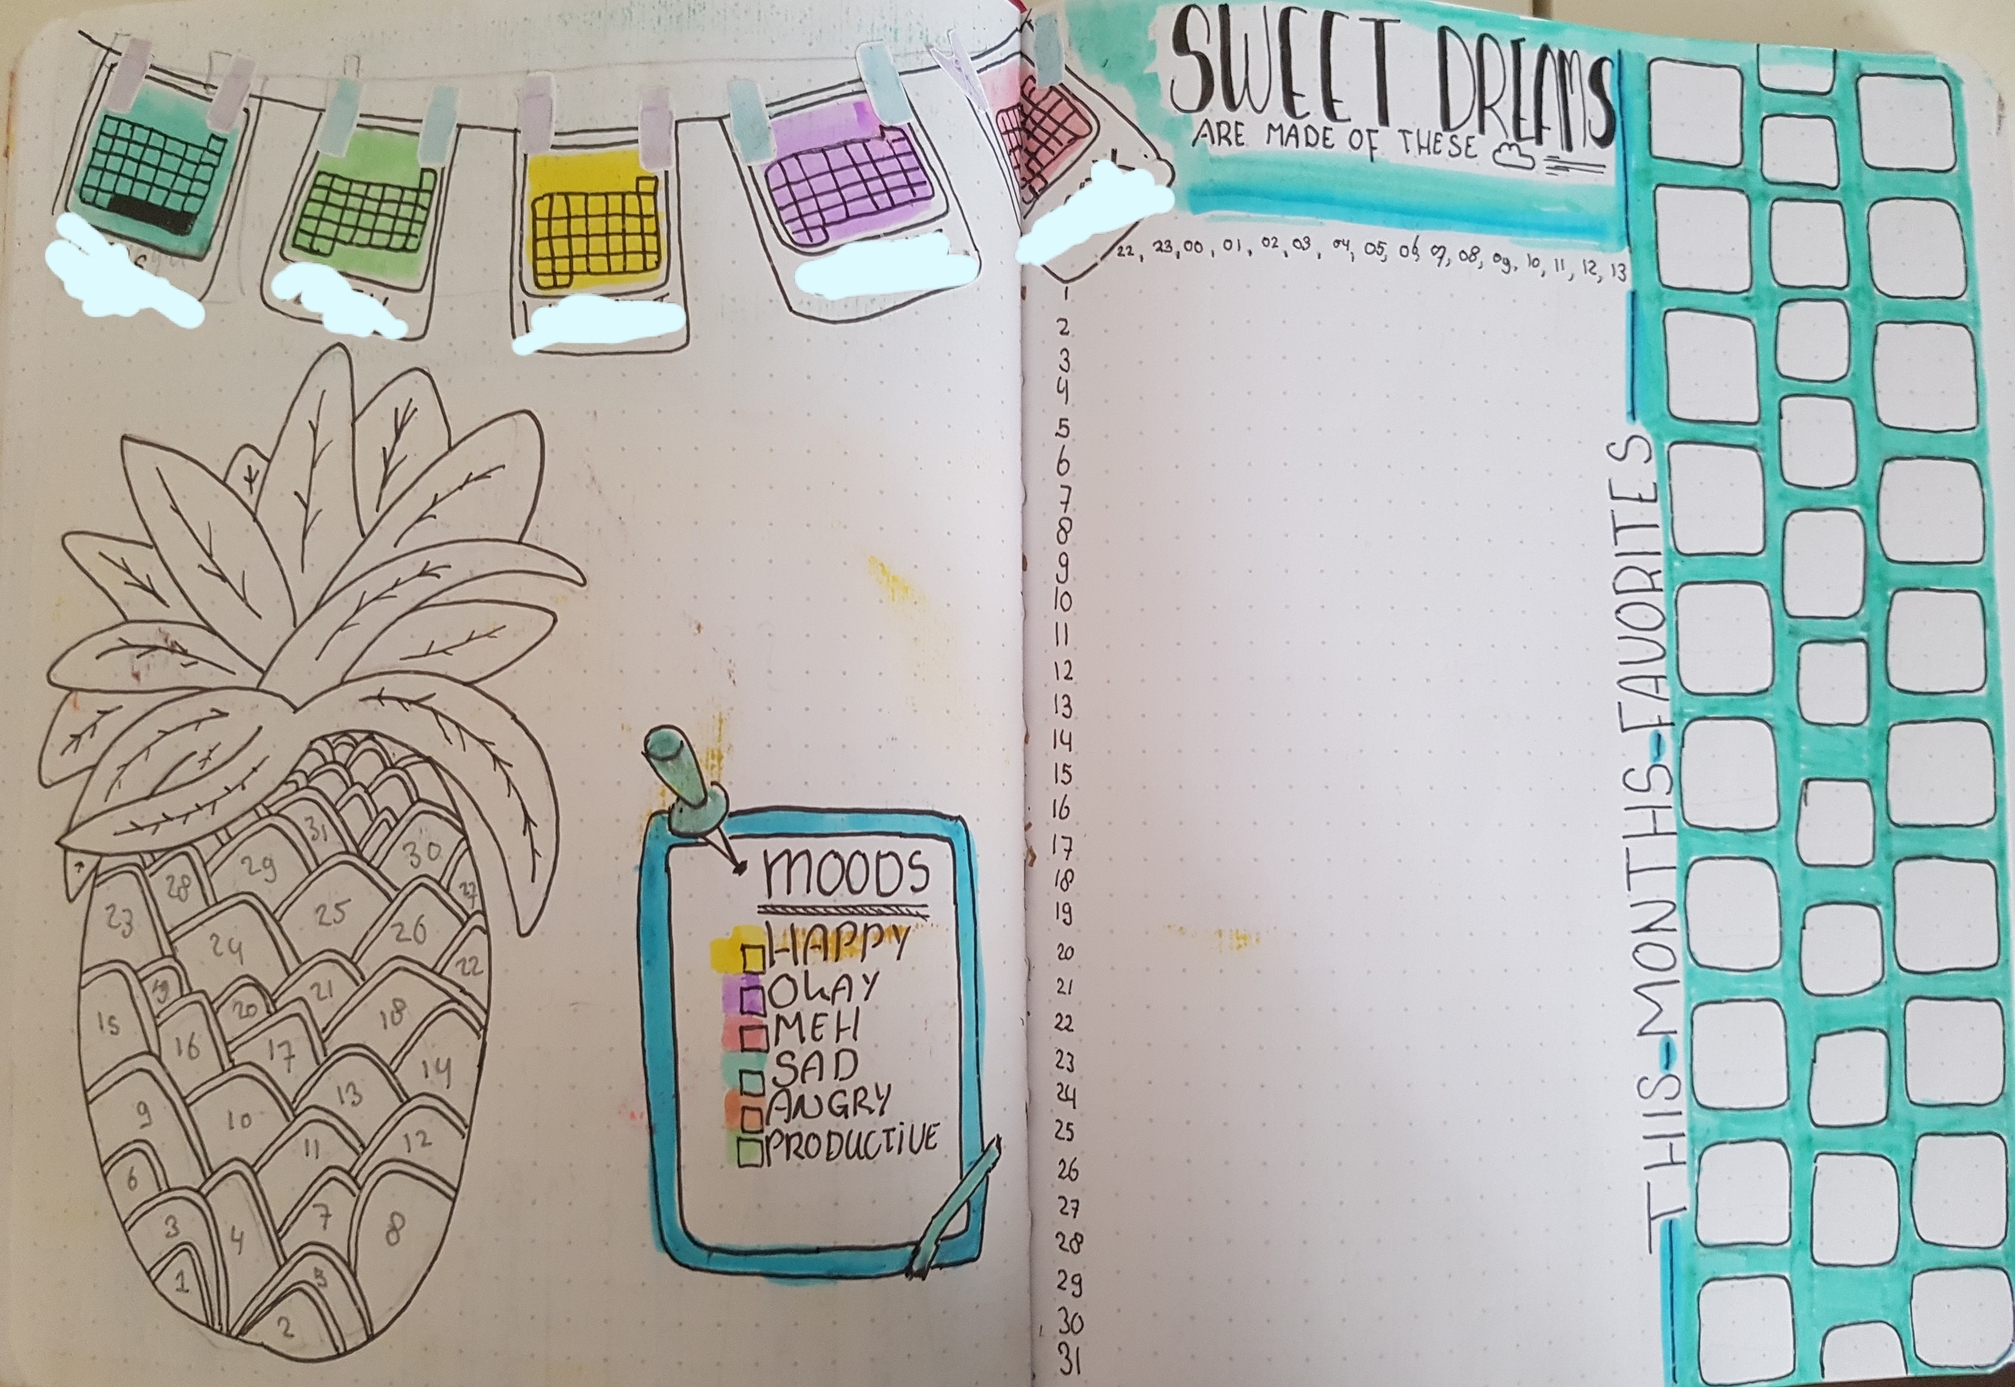 SWEET DREAMS
ARE MADE OF THESE
22, 23, 00, 01, 02, 03, 04, 05, 06, 07, 08, 09, 10, 11, 12, 13
1
2
3
4
5
6
7
8
9
10
11
12
13
14
15
16
17
18
19
20
21
22
23
24
25
26
27
28
29
30
31
THIS-MONTHS-FAVORITES
MOODS
HAPPY
OKAY
MEH
SAD
ANGRY
PRODUCTIVE
31
29
30
28
27
23
25
26
24
22
19
21
20
15
18
16
17
14
13
9
10
12
11
6
7
8
3
4
5
1
2